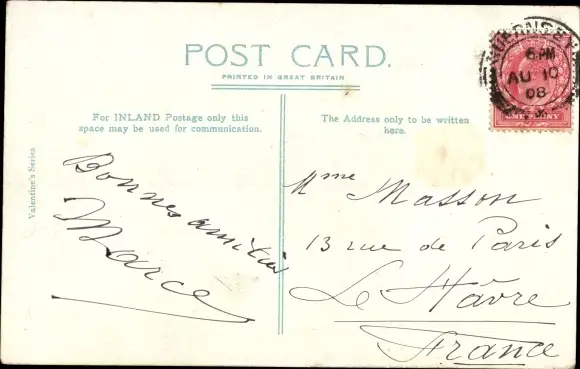 POST CARD.
PRINTED IN GREAT BRITAIN
For INLAND Postage only this
space may be used for communication.
The Address only to be written
here.
Valentine's Series
GUERNSEY
6. PM
AU 10
08
ONE PENNY
Bonnes amitiés
Marcel
Mme Masson
13 rue de Paris
Le Hâvre
France